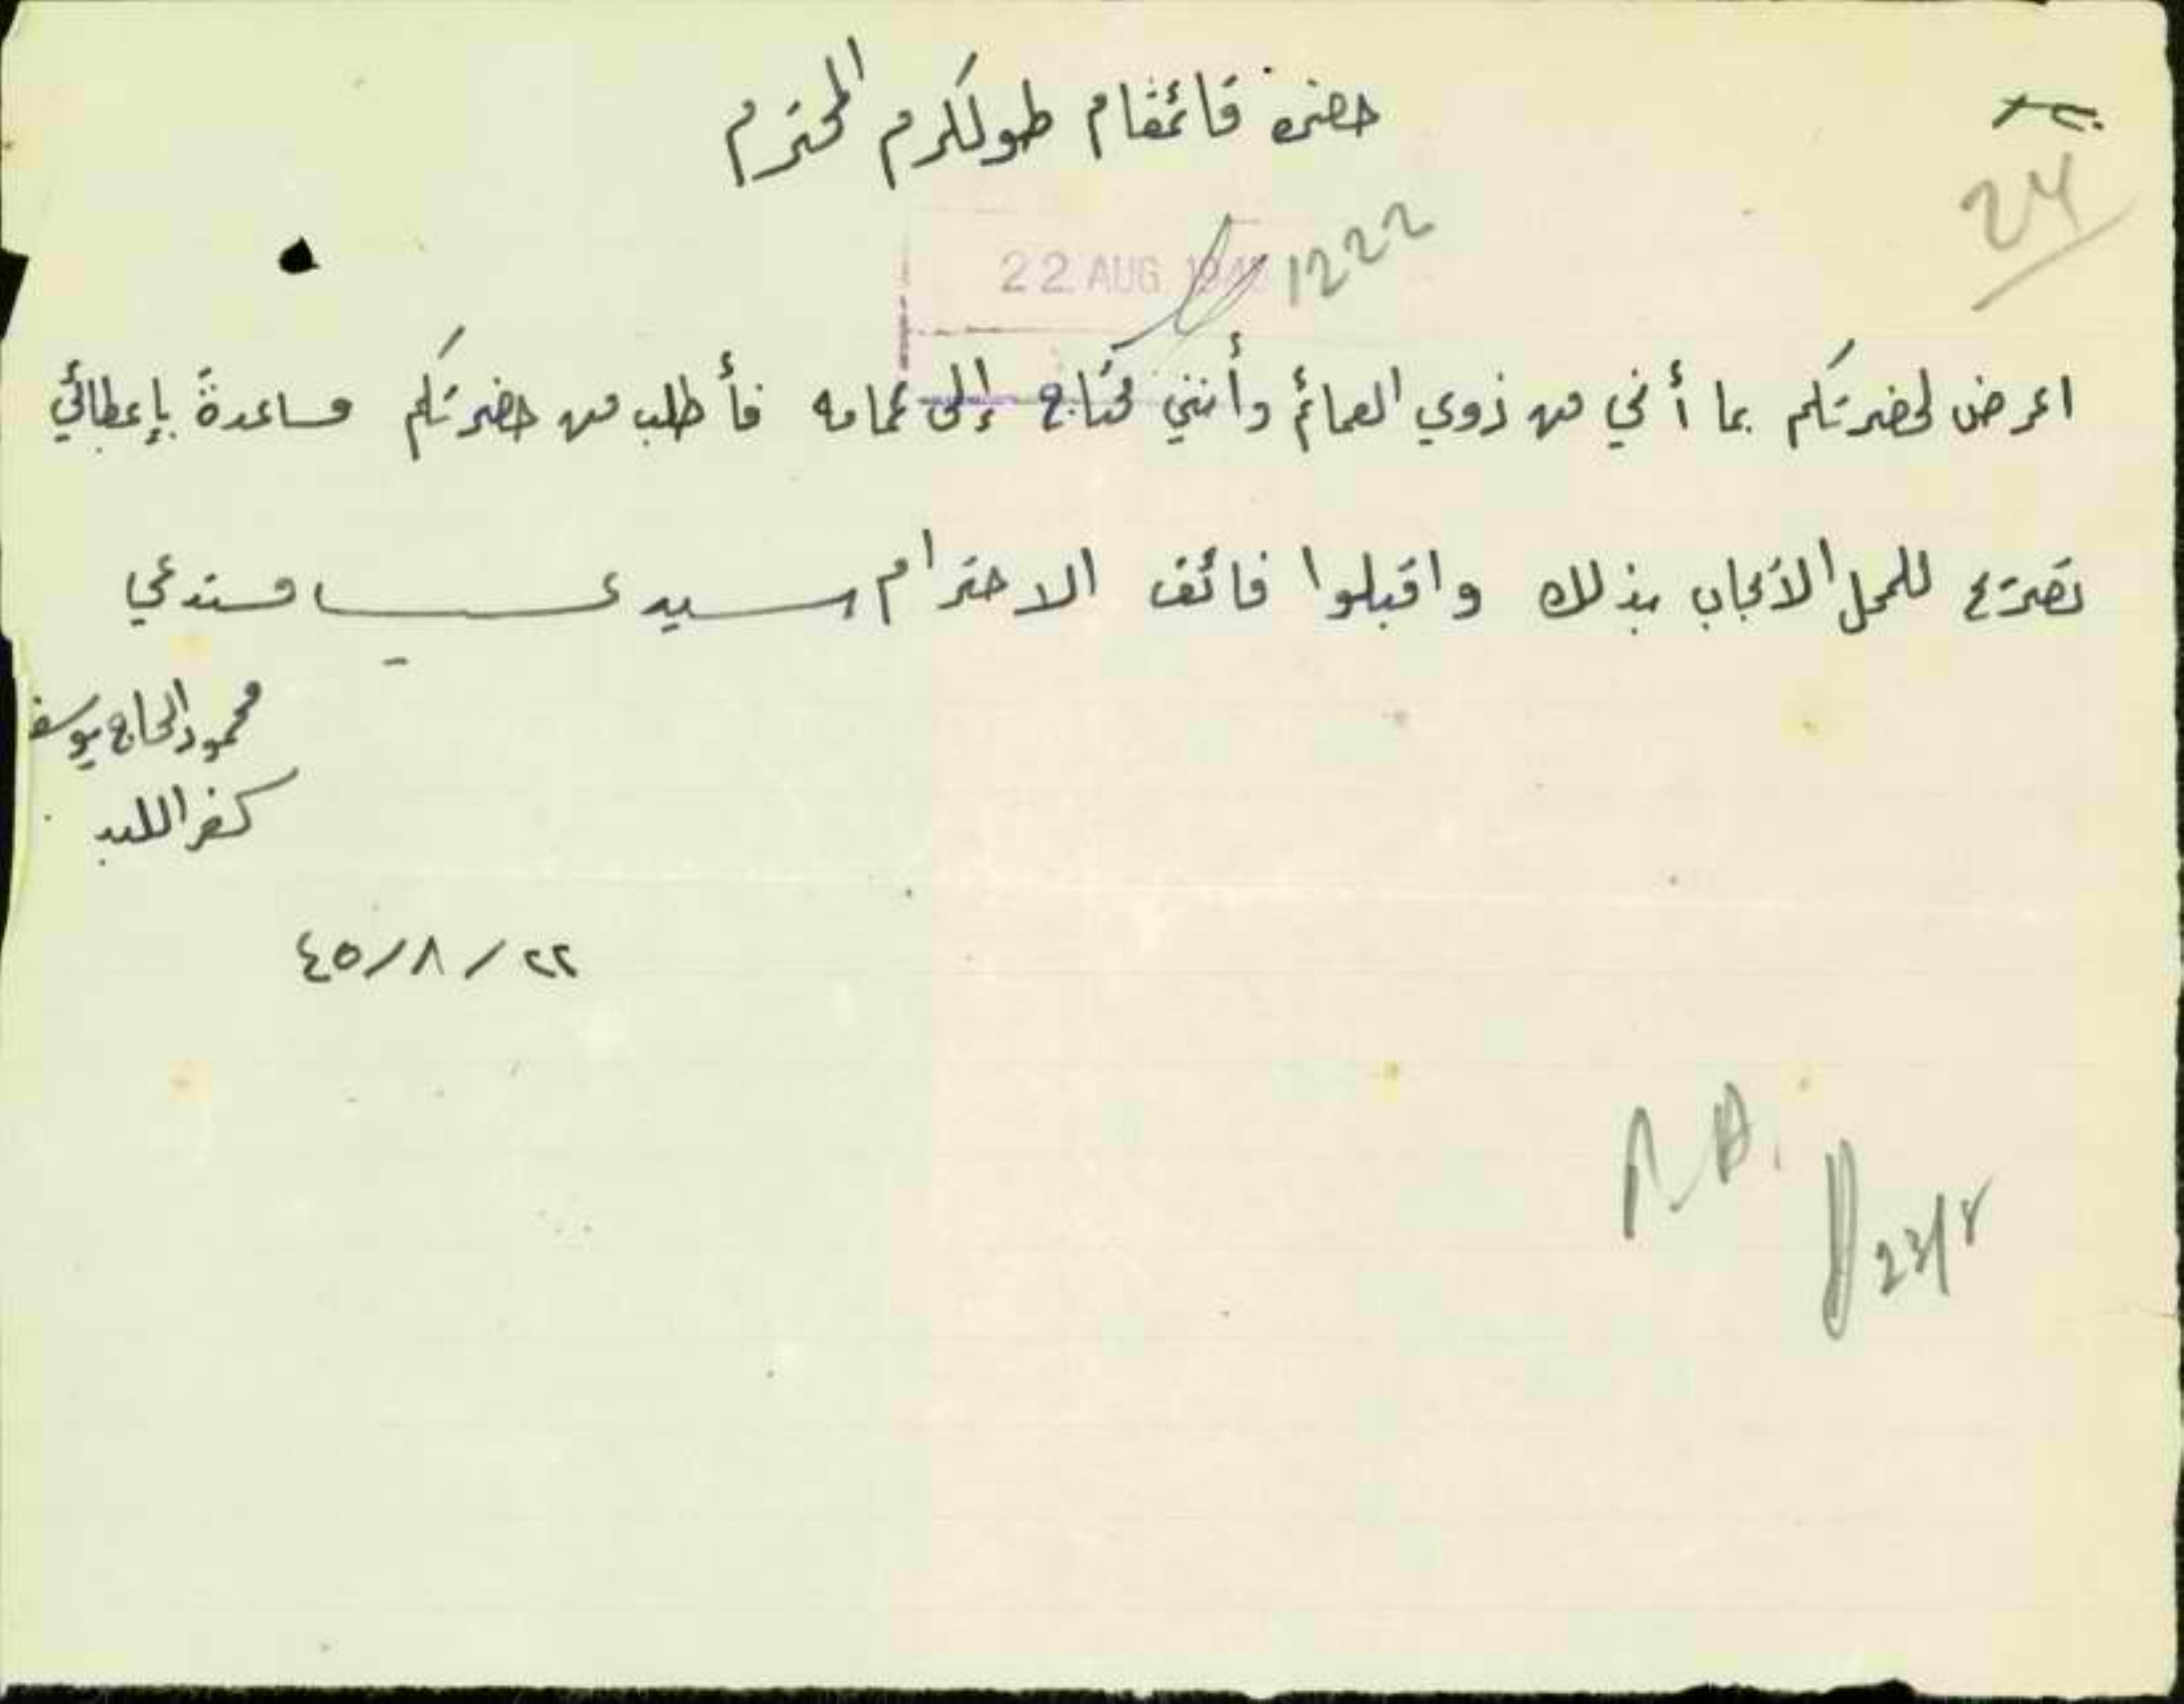 حضرة قائمقام طولكرم المحترم
24
1222
22 AUG 1945
اعرض لحضرتكم بما أني من ذوي العمائم وأنني محتاج إلى عمامه فأطلب من حضرتكم مساعدةً بإعطائي
تصريح للمحل الايجاب بذلك واقبلوا فائق الاحترام سيدي مستدعي
محمود الحاج يوسف
كفر اللبد
٢٢/٨/٤٥
23/8